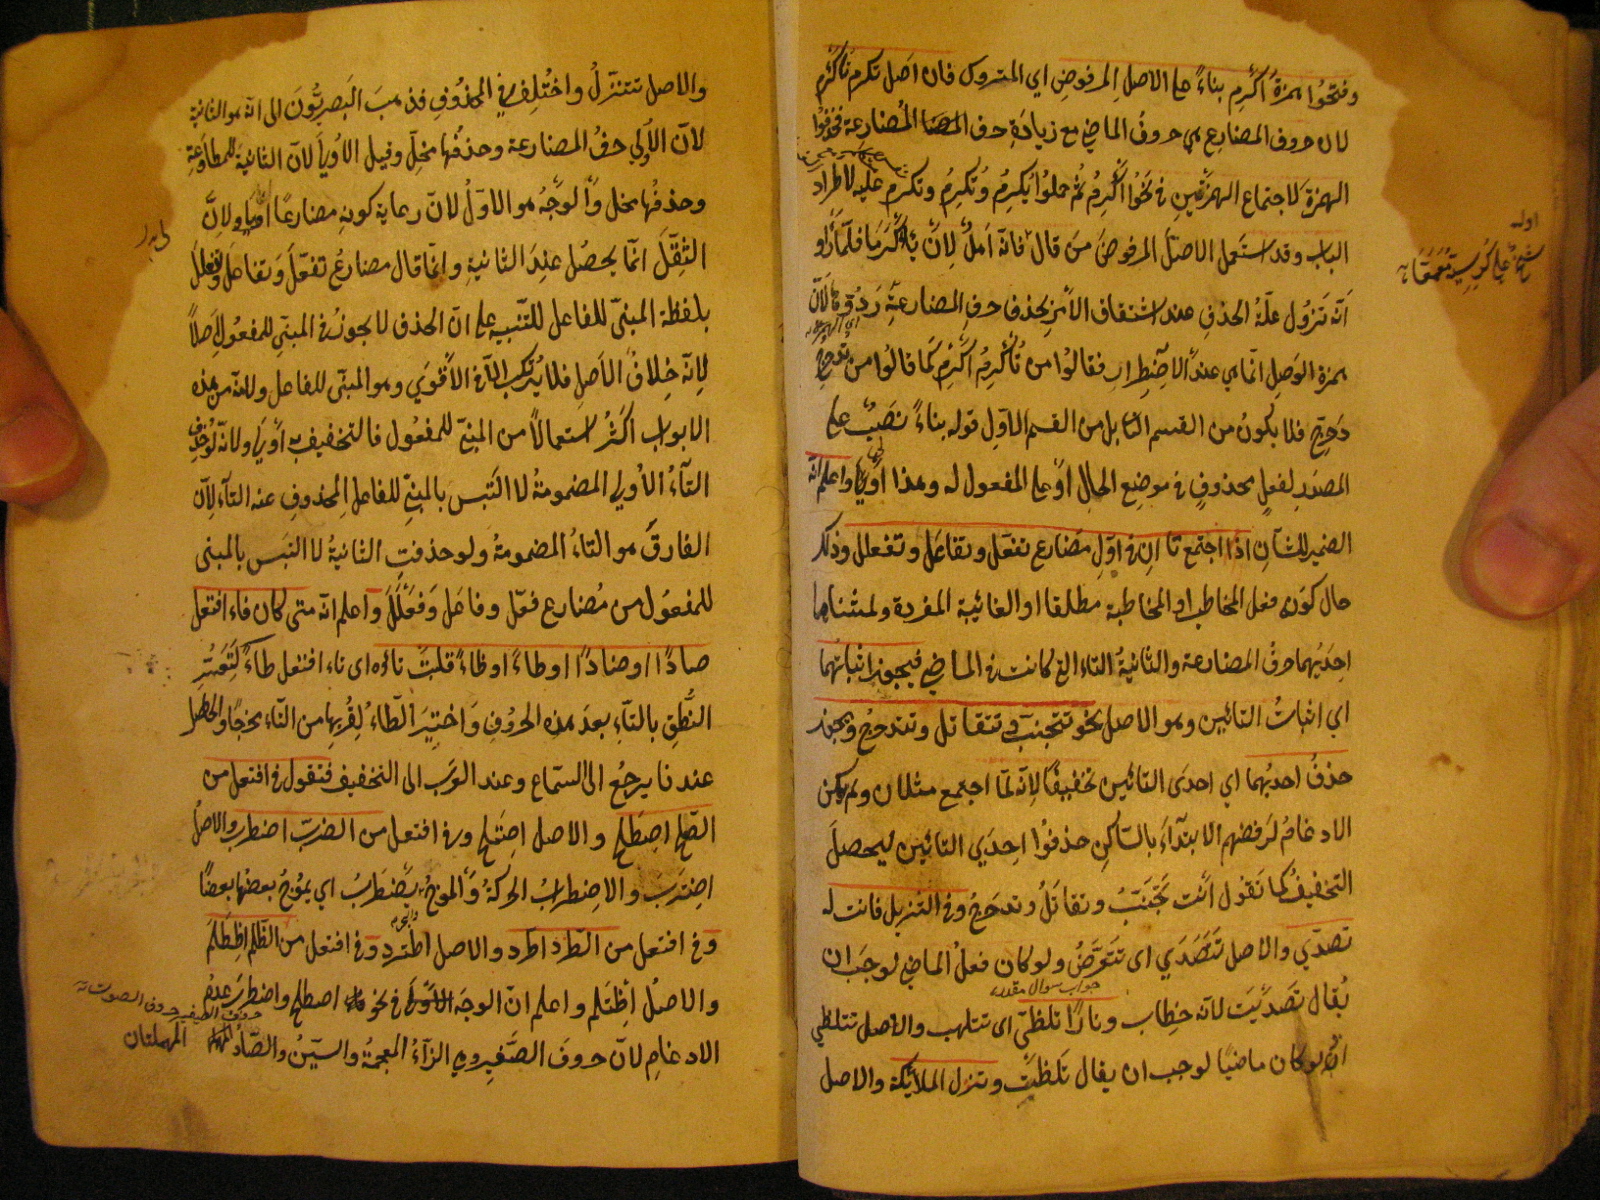 وفتحوا همزة أكرم بناء على الاصل المرفوض اى المتروك فان اصل تكرم تأكرم
لان حروف المضارع هى حروف الماضى مع زيادة حرف المضارعة فحذفوا
الهمزة لاجتماع الهمزتين فى نحو أأكرم ثم حملوا يكرم وتكرم ونكرم عليه لاطراد
الباب وقد استعمل الاصل المرفوض من قال فانه اهل لان يؤكرما فلما رأوا
انه تزول علة الحذف عند اشتقاق الامر بحذف حرف المضارعة ردوها لان
همزة الوصل انما هى عند الاضطرار فقالوا من تأكرم أكرم كما قالوا من تدحرج
دحرج فلا يكون من القسم الثانى بل من القسم الاول قوله بناء نصب على
المصدر لفعل محذوف فى موضع الحال او على المفعول له وهذا اولى واعلم انه
الضمير للشان اذا اجتمع تاان فى اول مضارع تفعل وتفاعل وتفعلل وذلك
حال كونه فعل المخاطب او المخاطبة مطلقا او الغائبة المفردة ولمثناها
احديهما حرف المضارعة والثانية التاء التى كانت فى الماضى فيجوز اثباتهما
اى اثبات التائين وهو الاصل نحو تتجنب وتتقاتل وتتدحرج ويجوز
حذف احديهما اى احدى التائين تخفيفا لانه لما اجتمع مثلان ولم يمكن
الادغام لرفضهم الابتداء بالساكن حذفوا احدى التائين ليحصل
التخفيف كما تقول انت تجنب وتقاتل وتدحرج وفى التنزيل فانت له
تصدى والاصل تتصدى اى تتعرض ولو كان فعل الماضى لوجب ان
جواب سوال مقدر
يقال تصديت لانه خطاب ونارا تلظى اى تتلهب والاصل تتلظى
لو كان ماضيا لوجب ان يقال تلظت وتنزل الملائكة والاصل
والاصل تتنزل واختلف فى المحذوف فذهب البصريون الى انه هو الثانية
لان الاولى حرف المضارعة وحذفها مخل وقيل الاولى لان الثانية للمطاوعة
وحذفها مخل والوجه هو الاول لان رعاية كونه مضارعا اولى ولان
الثقل انما يحصل عند الثانية وانما قال مضارع تفعل وتفاعل وتفعلل
بلفظة المبنى للفاعل للتنبيه على ان الحذف لا يجوز فى المبنى للمفعول اصلا
لانه خلاف الاصل فلا يرتكب الا فى الاقوى وهو المبنى للفاعل ولانه من هذه
الابواب اكثر استعمالا من المبنى للمفعول فالتخفيف به اولى ولانه لو حذف
التاء الاولى المضمومة لا التبس بالمبنى للفاعل المحذوف عنه التاء لان
الفارق هو التاء المضمومة ولو حذفت الثانية لا التبس بالمبنى
للمفعول من مضارع فعل وفاعل وفعلل واعلم انه متى كان فاء افتعل
صادا او ضادا او طاء او ظاء قلبت تاؤه اى تاء افتعل طاء لتعسر
النطق بالتاء بعد هذه الحروف واختير الطاء لقربها من التاء مخرجا والحاصل
عندنا يرجع الى السماع وعند العرب الى التخفيف فتقول فى افتعل من
الصلح اصطلح والاصل اصتلح وفى افتعل من الضرب اضطرب والاصل
اضترب والاضطراب الحركة والموج يضطرب اى يموج بعضها بعضا
وفى افتعل من الطرد اطرد والاصل اطترد وفى افتعل من الظلم اظطلم
والاصل اظتلم واعلم ان الوجه فى نحو اصطلح واضطرب عدم
الادغام لان حروف الصفير وهى الزاء المعجمة والسين والصاد المهملتان